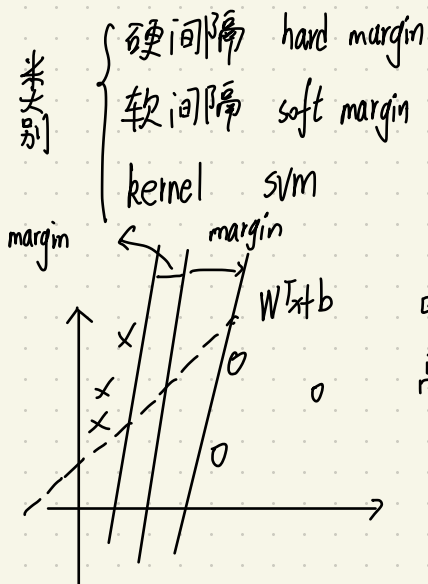 类别
硬间隔 hard margin
软间隔 soft margin
kernel SVM
margin
margin
W^T x+b